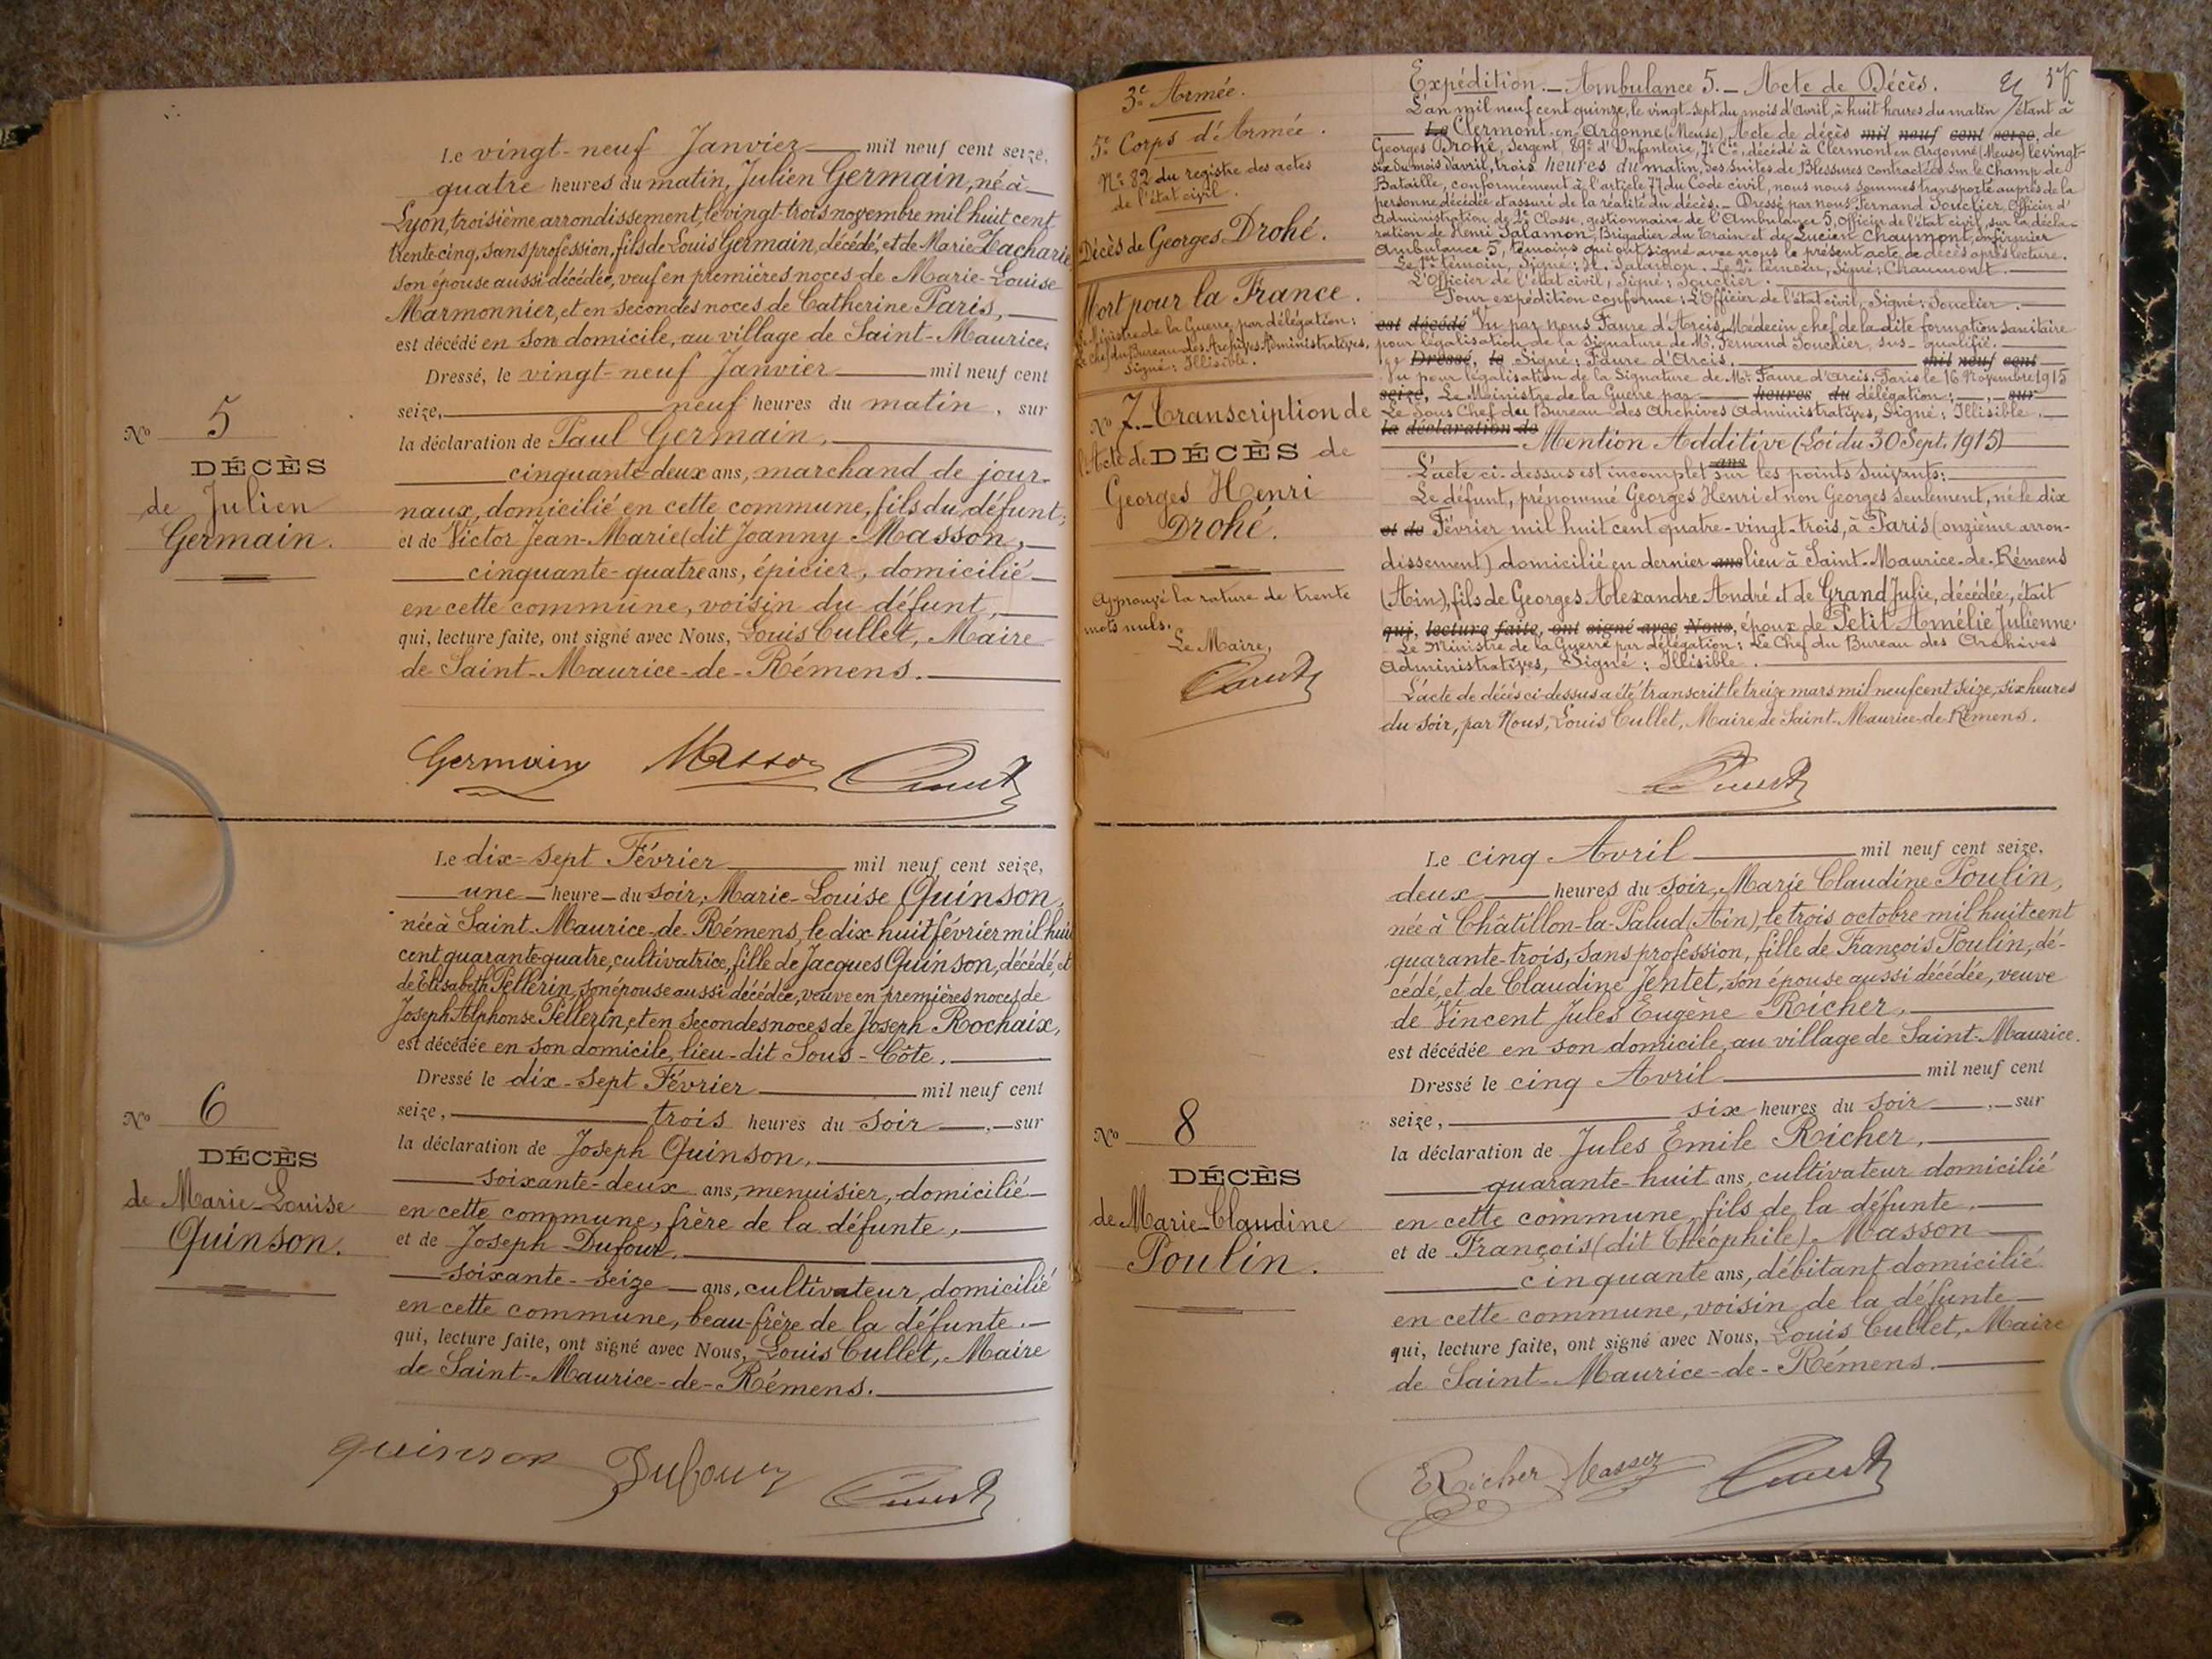 Le vingt-neuf Janvier mil neuf cent seize,
quatre heures du matin, Julien Germain, né à
Lyon, troisième arrondissement, le vingt-trois novembre mil huit cent
trente-cinq, sans profession, fils de Louis Germain, décédé, et de Marie Zacharie
son épouse aussi décédée, veuf en premières noces de Marie-Louise
Marmonnier, et en secondes noces de Catherine Paris,
est décédé en son domicile, au village de Saint-Maurice.
Dressé, le vingt-neuf Janvier mil neuf cent
seize, neuf heures du matin, sur
la déclaration de Paul Germain,
cinquante-deux ans, marchand de jour-
naux, domicilié en cette commune, fils du défunt;
et de Victor Jean-Marie (dit Joanny Masson,
cinquante-quatre ans, épicier, domicilié
en cette commune, voisin du défunt,
qui, lecture faite, ont signé avec Nous, Louis Cullet, Maire
de Saint-Maurice-de-Rémens.
No 5
DÉCÈS
de Julien
Germain.
Germain Masson
Le dix-sept Février mil neuf cent seize,
une heure du soir, Marie-Louise Quinson,
née à Saint-Maurice-de-Rémens, le dix-huit février mil huit
cent quarante-quatre, cultivatrice, fille de Jacques Quinson, décédé, et
de Elisabeth Pellerin, son épouse aussi décédée, veuve en premières noces de
Joseph Alphonse Pellerin, et en secondes noces de Joseph Rochaix,
est décédée en son domicile, lieu-dit Sous-Côte.
Dressé le dix-sept Février mil neuf cent
seize, trois heures du soir, sur
la déclaration de Joseph Quinson,
soixante-deux ans, menuisier, domicilié
en cette commune, frère de la défunte,
et de Joseph Dufour,
soixante-seize ans, cultivateur, domicilié
en cette commune, beau-frère de la défunte.
qui, lecture faite, ont signé avec Nous, Louis Cullet, Maire
de Saint-Maurice-de-Rémens.
No 6
DÉCÈS
de Marie-Louise
Quinson.
quinson Dufour
3e Armée.
5e Corps d'Armée.
No 82 du registre des actes
de l'état civil.
Décès de Georges Drohé.
Mort pour la France.
Le Ministre de la Guerre, par délégation:
Le chef du Bureau des Archives Administratives,
Signé: Illisible.
No 7. Transcription de
l'Acte de DÉCÈS de
Georges Henri
Drohé.
Approuvé la rature de trente
mots nuls.
Le Maire,
Expédition. Ambulance 5. Acte de Décès. 57
L'an mil neuf cent quinze, le vingt-sept du mois d'Avril, à huit heures du matin, étant à
Le Clermont-en-Argonne (Meuse), Acte de décès mil neuf cent seize, de
Georges Drohé, Sergent, 89e d'Infanterie, 7e Cie, décédé à Clermont en Argonne (Meuse) le vingt-
six du mois d'avril, trois heures du matin, des suites de Blessures contractées sur le Champ de
Bataille, conformément à l'article 77 du Code civil, nous nous sommes transporté auprès de la
personne décédée et assuré de la réalité du décès. Dressé par nous Fernand Souclier, Officier d'
Administration de 2e Classe, gestionnaire de l'Ambulance 5, Officier de l'état civil, sur la décla-
ration de Henri Salamon, Brigadier du Train et de Lucien Chaumont, infirmier
Ambulance 5, témoins qui ont signé avec nous le présent acte de décès après lecture.
Le 1er témoin, Signé: H. Salamon. Le 2e témoin, Signé: Chaumont.
L'Officier de l'état civil, Signé: Souclier.
Pour expédition conforme: L'Officier de l'état civil, Signé: Souclier.
est décédé Vu par nous Faure d'Arcis, Médecin chef de la dite formation sanitaire
pour légalisation de la signature de Mr. Fernand Souclier, sus-qualifié.
Dressé, le Signé: Faure d'Arcis. mil neuf cent
Vu pour légalisation de la Signature de Mr. Faure d'Arcis. Paris le 16 Novembre 1915
seize, Le Ministre de la Guerre par heures du délégation: sur
Le Sous Chef du Bureau des Archives Administratives, Signé: Illisible.
la déclaration de Mention Additive (Loi du 30 Sept. 1915)
L'acte ci-dessus est incomplet ans sur les points suivants:
Le défunt, prénommé Georges Henri et non Georges seulement, né le dix
et de Février mil huit cent quatre-vingt-trois, à Paris (onzième arron-
dissement) domicilié en dernier ans lieu à Saint-Maurice-de-Rémens
(Ain), fils de Georges Alexandre André et de Grand Julie, décédée, était
qui, lecture faite, ont signé avec Nous, époux de Petit Amélie Julienne.
Le Ministre de la Guerre par délégation: Le Chef du Bureau des Archives
Administratives, Signé: Illisible.
L'acte de décès ci-dessus a été transcrit le treize mars mil neuf cent seize, six heures
du soir, par Nous, Louis Cullet, Maire de Saint-Maurice-de-Rémens.
Le cinq Avril mil neuf cent seize,
deux heures du soir, Marie Claudine Poulin,
née à Châtillon-la-Palud (Ain), le trois octobre mil huit cent
quarante-trois, sans profession, fille de François Poulin, dé-
cédé, et de Claudine Jentet, son épouse aussi décédée, veuve
de Vincent Jules Eugène Richer,
est décédée en son domicile, au village de Saint-Maurice.
Dressé le cinq Avril mil neuf cent
seize, six heures du soir, sur
la déclaration de Jules Emile Richer,
quarante-huit ans, cultivateur domicilié
en cette commune, fils de la défunte,
et de François (dit Théophile) Masson
cinquante ans, débitant domicilié
en cette commune, voisin de la défunte
qui, lecture faite, ont signé avec Nous, Louis Cullet, Maire
de Saint-Maurice-de-Rémens.
No 8
DÉCÈS
de Marie-Claudine
Poulin.
ERicher Masson